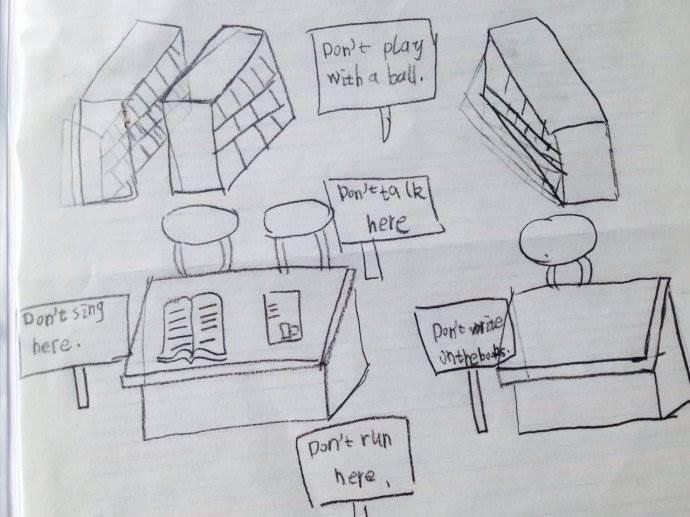 Don't play
with a ball.
Don't talk
here
Don't sing
here.
Don't write
on the books.
Don't run
here.